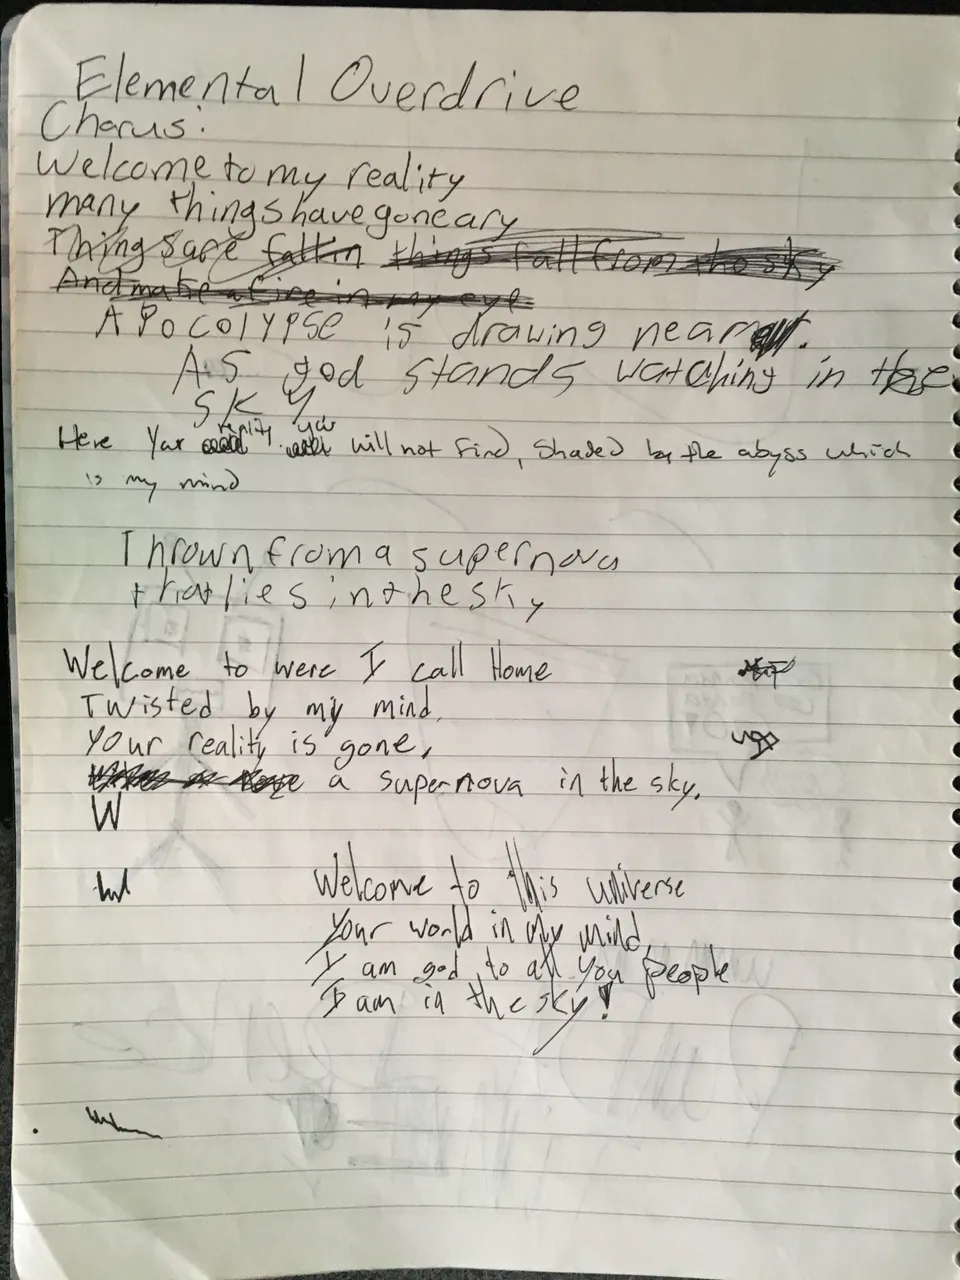 Elemental Overdrive
Chorus:
Welcome to my reality
many things have gone ary
Things are fallin things fall from the sky
And make a fire in my eye
APOCOlYPSE is drawing near.
AS god stands watching in the
SKY
reality you
Here Your will not find, shaded by the abyss which
is my mind
Thrown from a supernova
that lies in the sky
Welcome to were I call Home
Twisted by my mind,
your reality is gone,
a supernova in the sky.
W
Welcome to this universe
Your world in my mind,
I am god to all you people
I am in the sky!